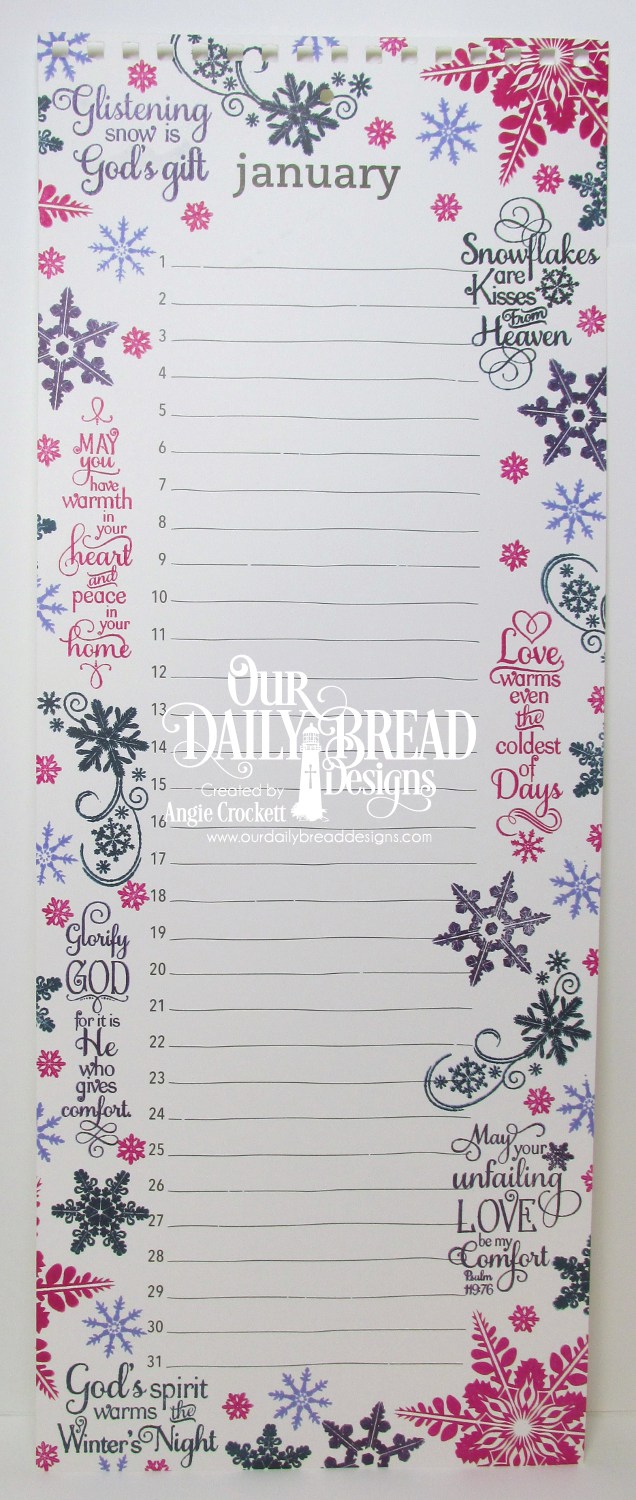 Glistening
snow is
God's gift
january
Snowflakes
are
Kisses
From
Heaven
MAY
you
have
warmth
in
your
heart
and
peace
in
your
home
Love
warms
even
the
coldest
of
Days
Glorify
GOD
for it is
He
who
gives
comfort.
May
your
unfailing
LOVE
be my
Comfort
Psalm
119:76
God's spirit
warms the
Winter's Night
1
2
3
4
5
6
7
8
9
10
11
12
13
14
15
16
17
18
19
20
21
22
23
24
25
26
27
28
29
30
31
OUR
DAILY BREAD
Designs
Created by
Angie Crockett
www.ourdailybreaddesigns.com